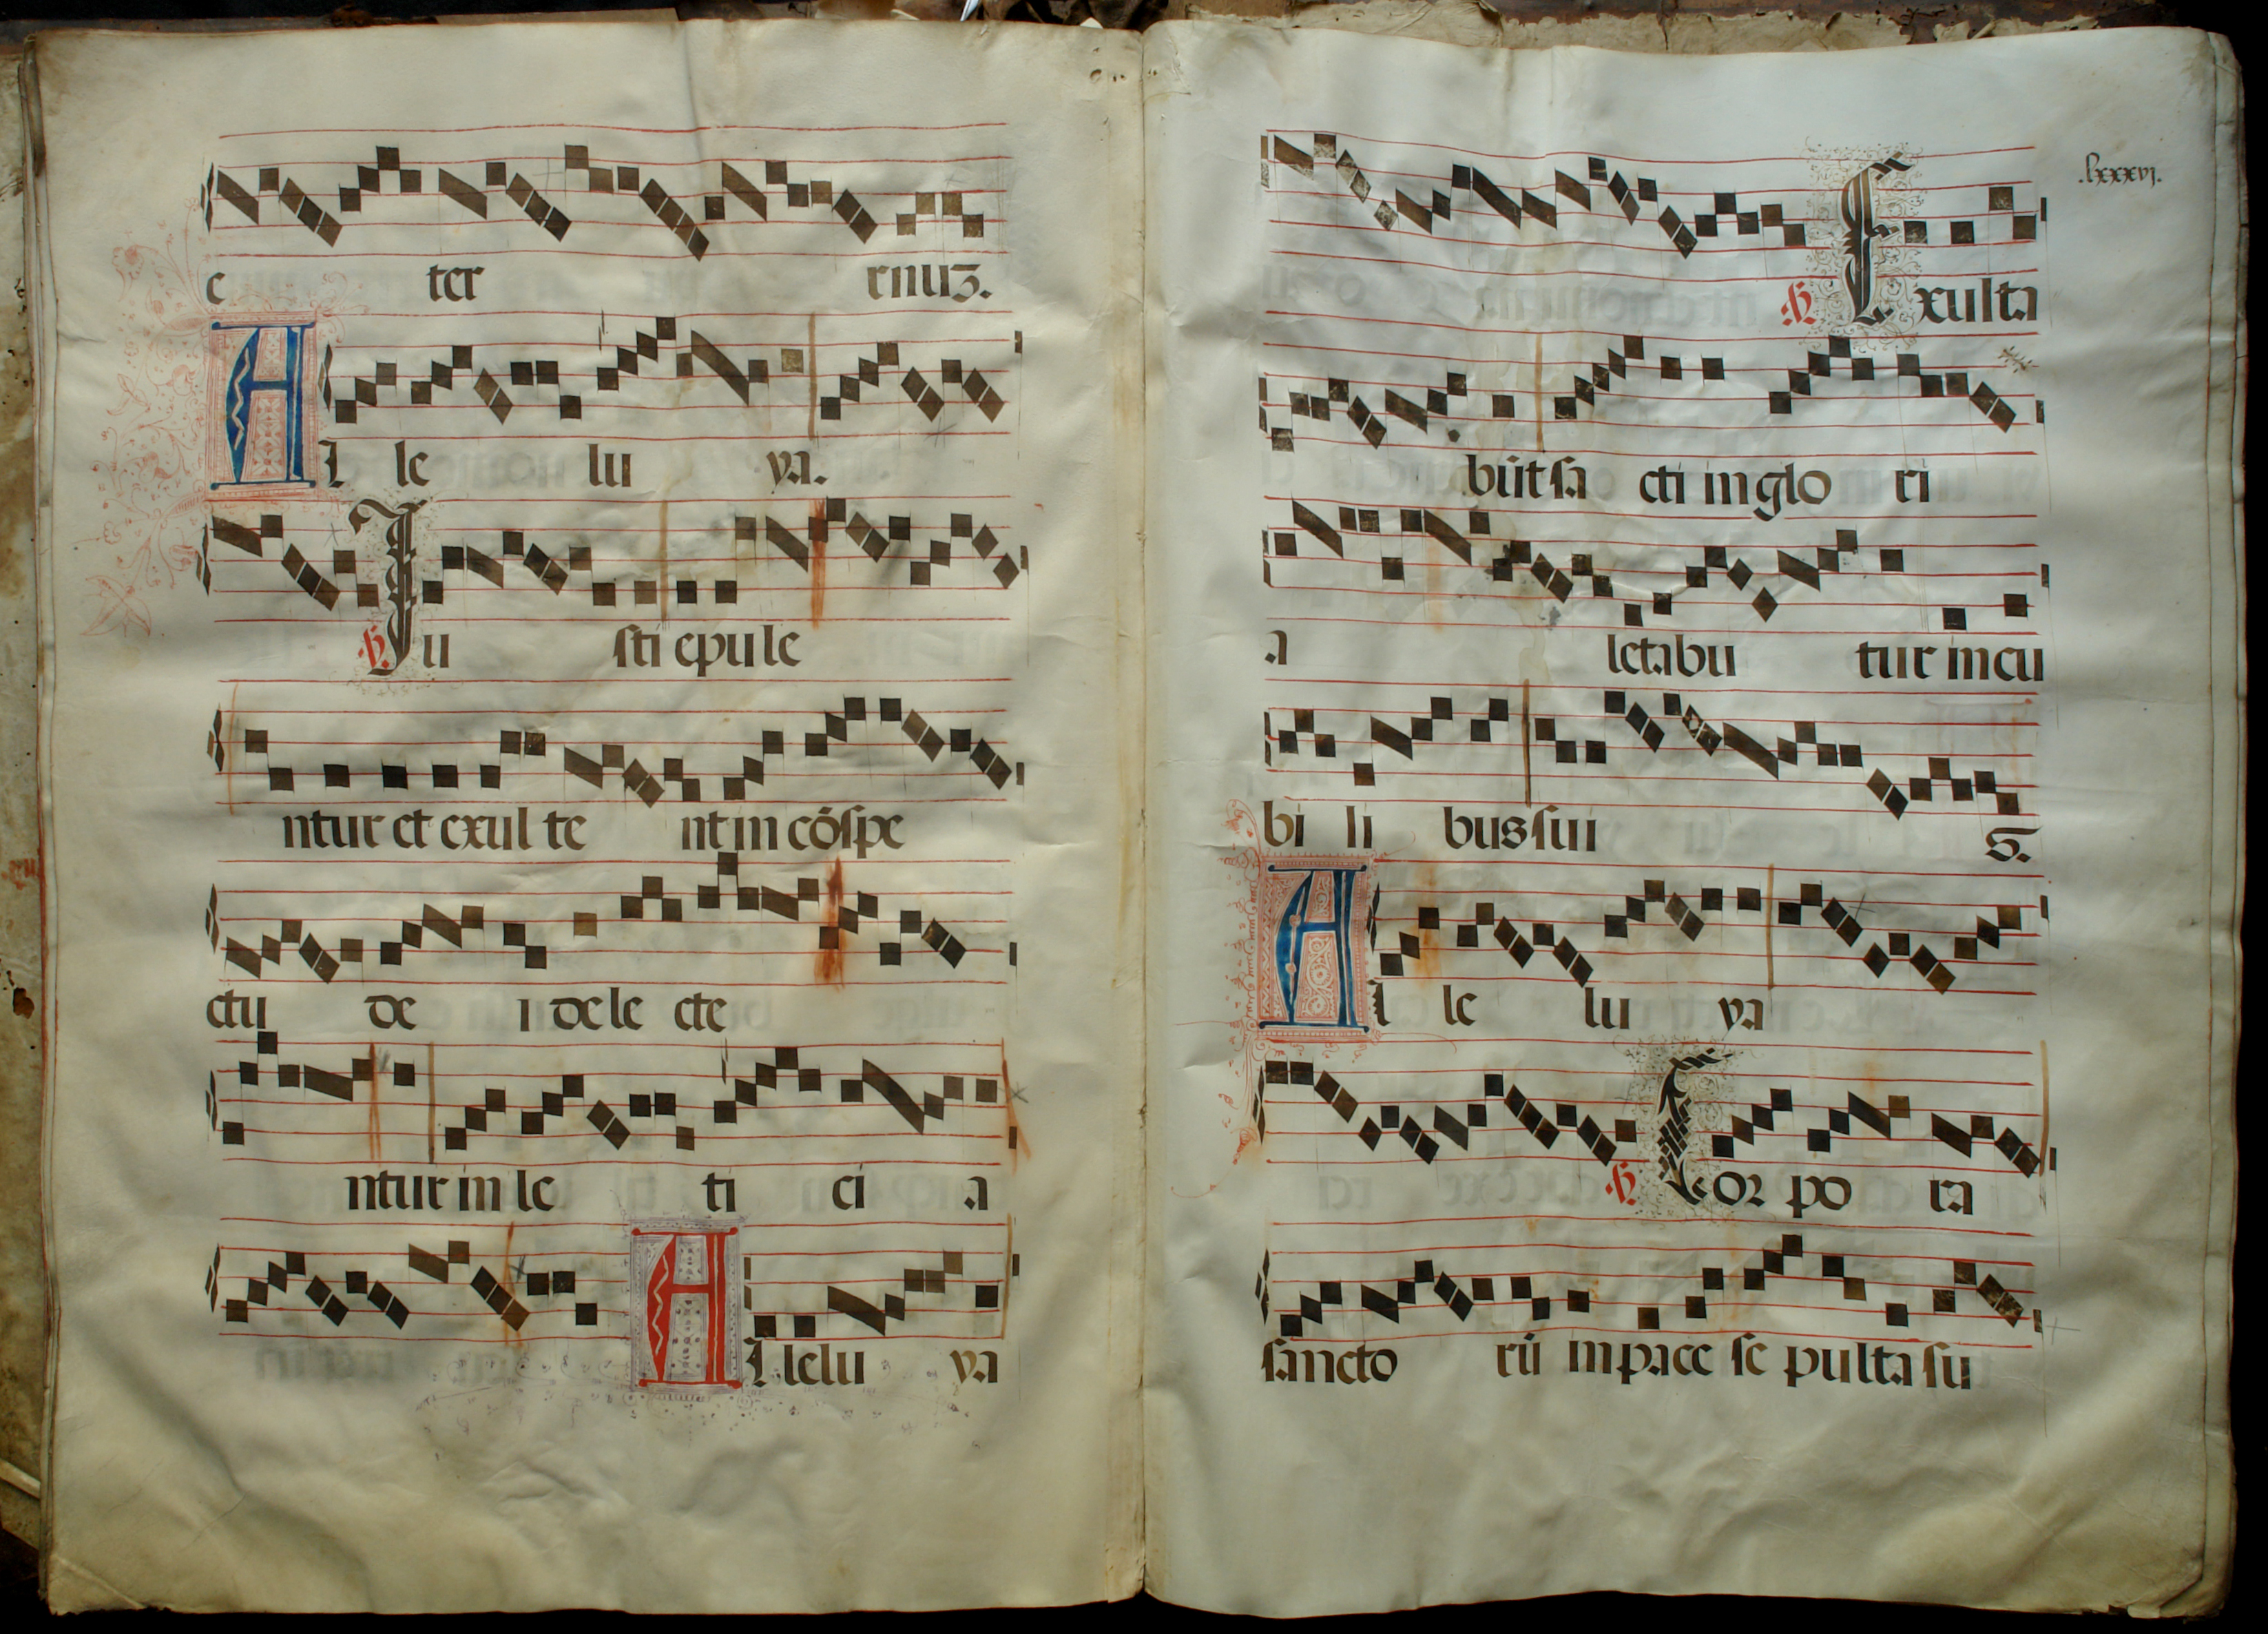 e ter rnuʒ.
Al le lu ya.
℣. Ju sti epule
ntur et exul te nt in cōspe
ctu de i dele cte
ntur in le ti ci a
Allelu ya
.lxxxvj.
℣. Exulta
būt sā cti in glo ri
a letabu tur in cu
bi li bus sui s.
Al le lu ya
℣. Corpo ra
sancto rū in pace se pulta su